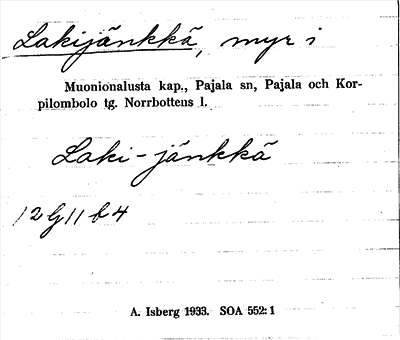 Lakijänkkä, myr i
Muonionalusta kap., Pajala sn, Pajala och Kor-
pilombolo tg. Norrbottens l.
Laki-jänkkä
12 G 11 b 4
A. Isberg 1933. SOA 552:1